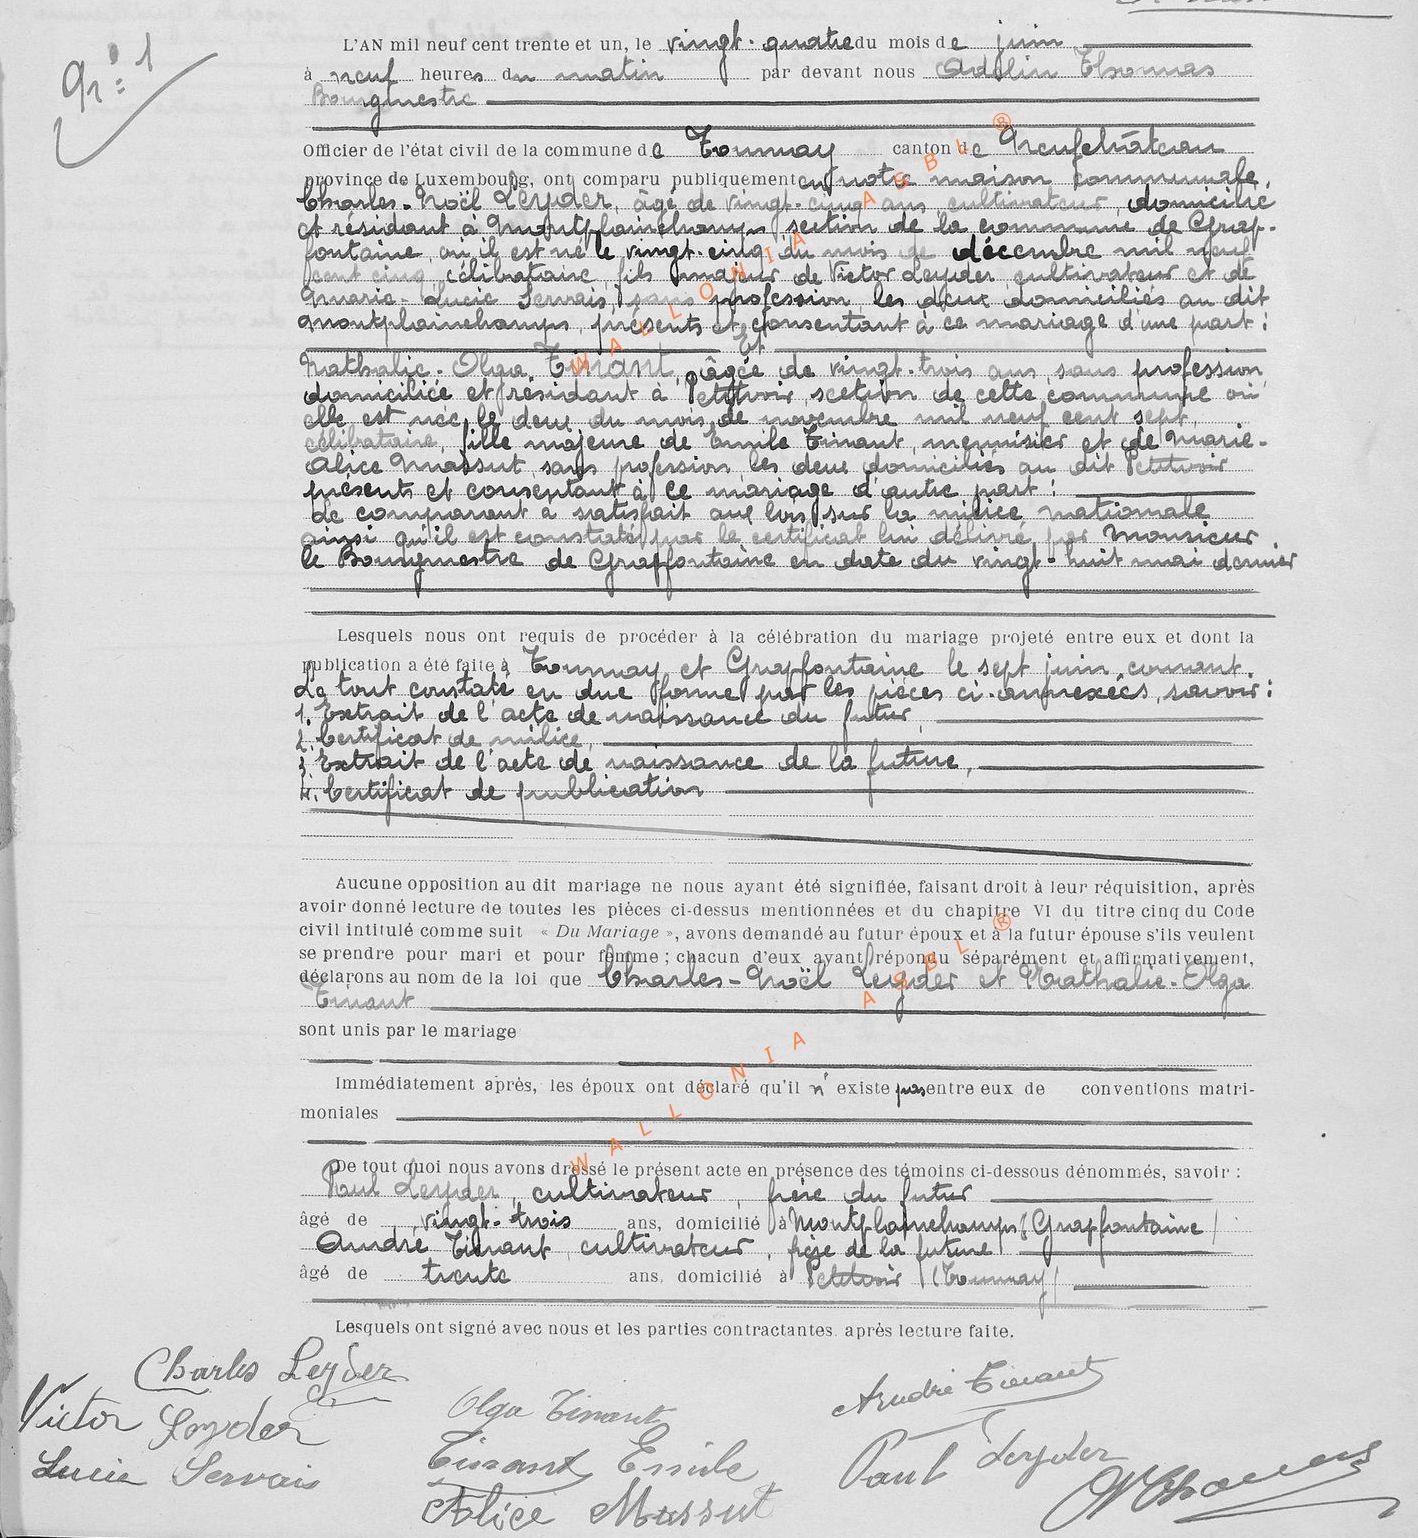 N° 1
L'AN mil neuf cent trente et un, le vingt-quatre du mois de juin
à neuf heures du matin par devant nous Adelin Thomas
Bourgmestre
Officier de l'état civil de la commune de Tournay canton de Neufchâteau
province de Luxembourg, ont comparu publiquement en notre maison communale,
Charles-Noël Leyder, âgé de vingt-cinq ans, cultivateur, domicilié
et résidant à Montplainchamps, section de la commune de Grap-
fontaine, où il est né le vingt-cinq du mois de décembre mil neuf
cent cinq, célibataire, fils majeur de Victor Leyder, cultivateur et de
Marie-Lucie Servais, sans profession les deux domiciliés au dit
Montplainchamps, présents et consentant à ce mariage d'une part :
Et
Nathalie-Olga Tinant, âgée de vingt-trois ans, sans profession,
domiciliée et résidant à Petitvoir, section de cette commune où
elle est née le deux du mois de novembre mil neuf cent sept,
célibataire, fille majeure de Emile Tinant, menuisier et de Marie-
Alice Massut, sans profession les deux domiciliés au dit Petitvoir
présents et consentant à ce mariage d'autre part :
Le comparant a satisfait aux lois sur la milice nationale
ainsi qu'il est constaté par le certificat lui délivré par Monsieur
le Bourgmestre de Grapfontaine en date du vingt-huit mai dernier
Lesquels nous ont requis de procéder à la célébration du mariage projeté entre eux et dont la
publication a été faite à Tournay et Grapfontaine le sept juin courant.
Le tout constaté en due forme par les pièces ci-annexées, savoir :
1. Extrait de l'acte de naissance du futur,
2. Certificat de milice,
3. Extrait de l'acte de naissance de la future,
4. Certificat de publication
Aucune opposition au dit mariage ne nous ayant été signifiée, faisant droit à leur réquisition, après
avoir donné lecture de toutes les pièces ci-dessus mentionnées et du chapitre VI du titre cinq du Code
civil intitulé comme suit « Du Mariage », avons demandé au futur époux et à la futur épouse s'ils veulent
se prendre pour mari et pour femme ; chacun d'eux ayant répondu séparément et affirmativement,
déclarons au nom de la loi que Charles-Noël Leyder et Nathalie-Olga
Tinant
sont unis par le mariage
Immédiatement après, les époux ont déclaré qu'il n'existe pas entre eux de conventions matri-
moniales
De tout quoi nous avons dressé le présent acte en présence des témoins ci-dessous dénommés, savoir :
Paul Leyder, cultivateur, frère du futur
âgé de vingt-trois ans, domicilié à Montplainchamps (Grapfontaine)
André Tinant, cultivateur, frère de la future
âgé de trente ans, domicilié à Petitvoir (Tournay)
Lesquels ont signé avec nous et les parties contractantes. après lecture faite.
Charles Leyder
Victor Leyder
Lucie Servais
Olga Tinant
Tinant Emile
Alice Massut
André Tinant
Paul Leyder
A Thomas
WALLONIA ASBL ®
WALLONIA ASBL ®